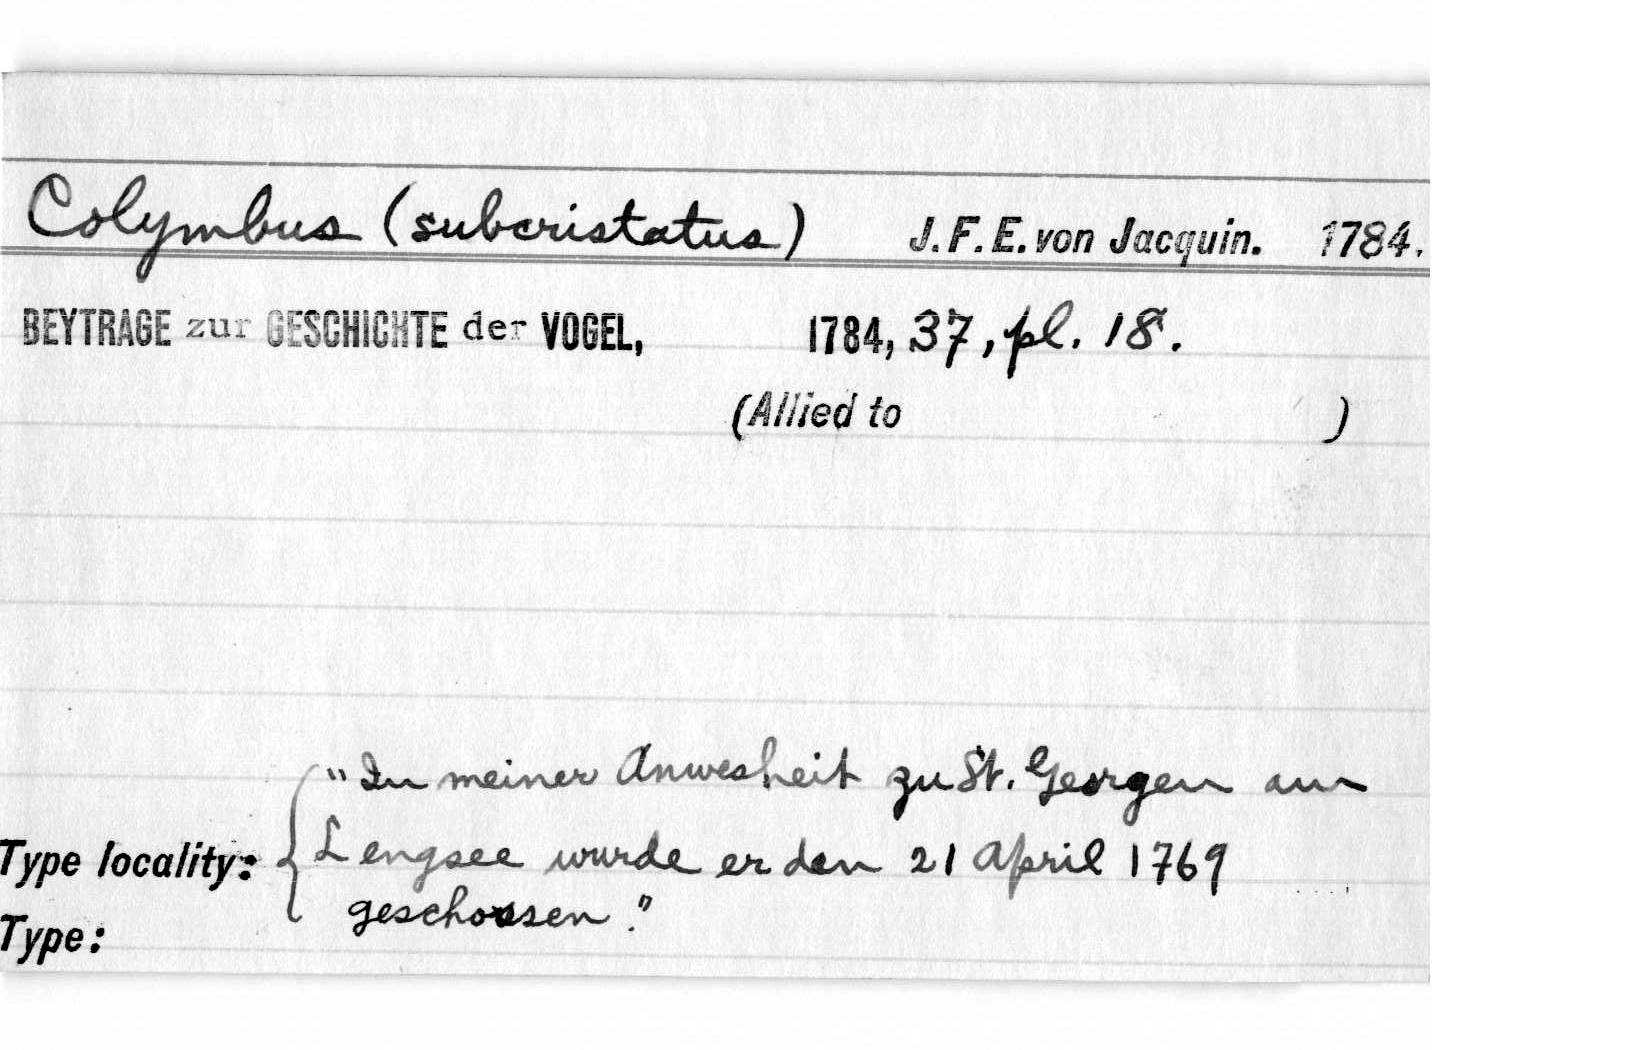 Colymbus (subcristatus) J.F.E. von Jacquin. 1784.
BEYTRAGE zur GESCHICHTE der VOGEL, 1784, 37, pl. 18.
(Allied to )
"In meiner Anwesheit zu St. Georgen am
Type locality: Lengsee wurde er den 21 April 1769
geschossen."
Type: